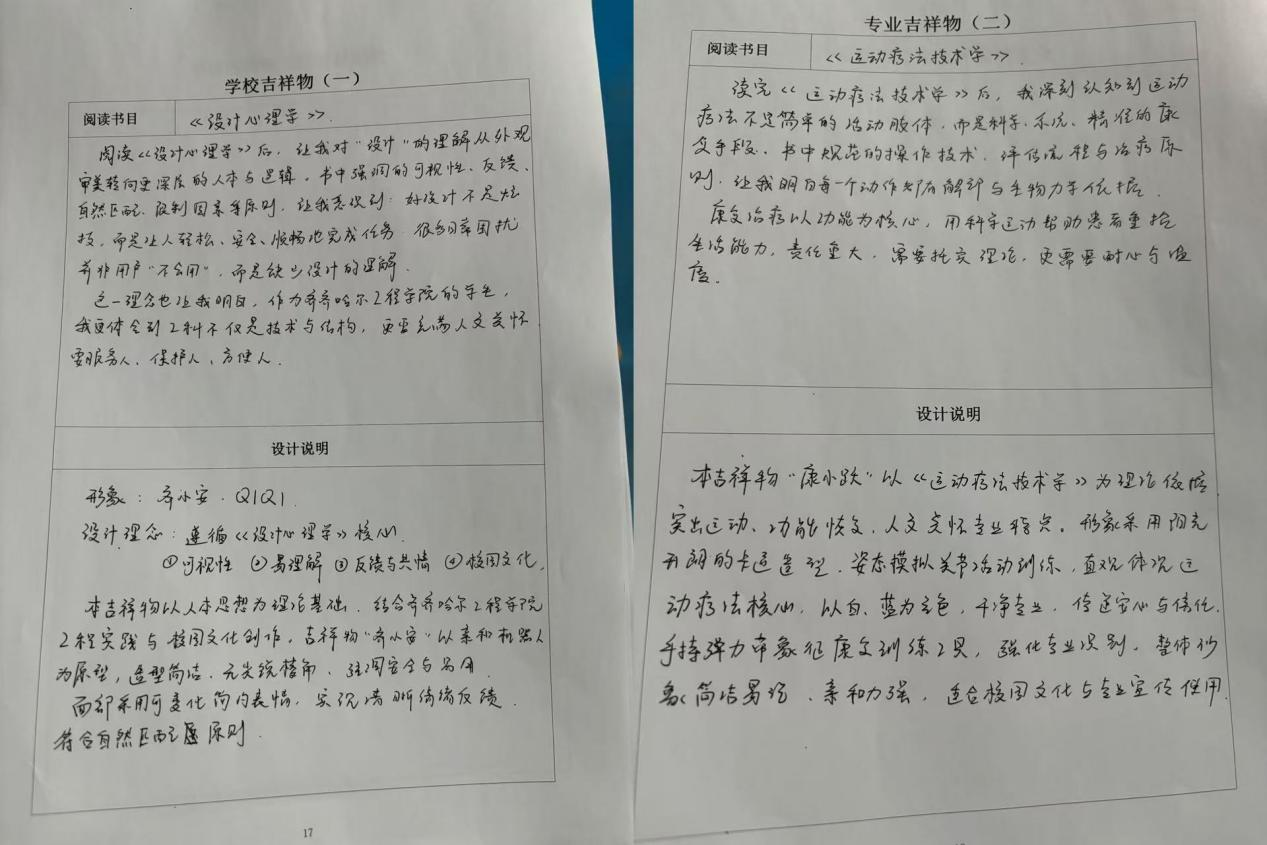 学校吉祥物（一）
阅读书目
《设计心理学》.
阅读《设计心理学》后，让我对"设计"的理解从外观
审美转向更深层的人本与逻辑。书中强调的可视性、反馈、
自然匹配、限制因素等原则，让我意识到：好设计不是炫
技，而是让人轻松、安全、顺畅地完成任务 很多日常困扰
并非用户"不会用"，而是缺少设计的理解.
这一理念也让我明白，作为齐齐哈尔工程学院的学生，
我更体会到工科不仅是技术与结构，更要充满人文关怀
要服务人、保护人、方便人.
设计说明
形象：齐小安. Q1Q1
设计理念：遵循《设计心理学》核心.
①可视性 ②易理解 ③反馈与共情 ④校园文化,
本吉祥物以人本思想为理论基础. 结合齐齐哈尔工程学院
工程实践与校园文化创作，吉祥物"齐小安"以亲和机器人
为原型，造型简洁、无尖锐棱角、强调安全与易用.
面部采用可变化简约表情，实现清晰情绪反馈.
符合自然匹配原则.
17
专业吉祥物（二）
阅读书目
《运动疗法技术学》.
读完《运动疗法技术学》后，我深刻认知到运动
疗法不是简单的活动肢体，而是科学、系统、精准的康
复手段、书中规范的操作技术，评估流程与治疗原
则，让我明白每一个动作都有解剖与生物力学依据.
康复治疗以功能为核心，用科学运动帮助患者重拾
生活能力，责任重大，需要扎实理论，更需要耐心与温
度。
设计说明
本吉祥物"康小跃"以《运动疗法技术学》为理论依据
突出运动、功能恢复、人文关怀专业特点。形象采用阳光
开朗的卡通造型，姿态模拟关节活动训练，直观体现运
动疗法核心，以白、蓝为主色，干净专业，传递安心与信任.
手持弹力带象征康复训练工具，强化专业识别，整体形
象简洁易记、亲和力强，适合校园文化与专业宣传使用.